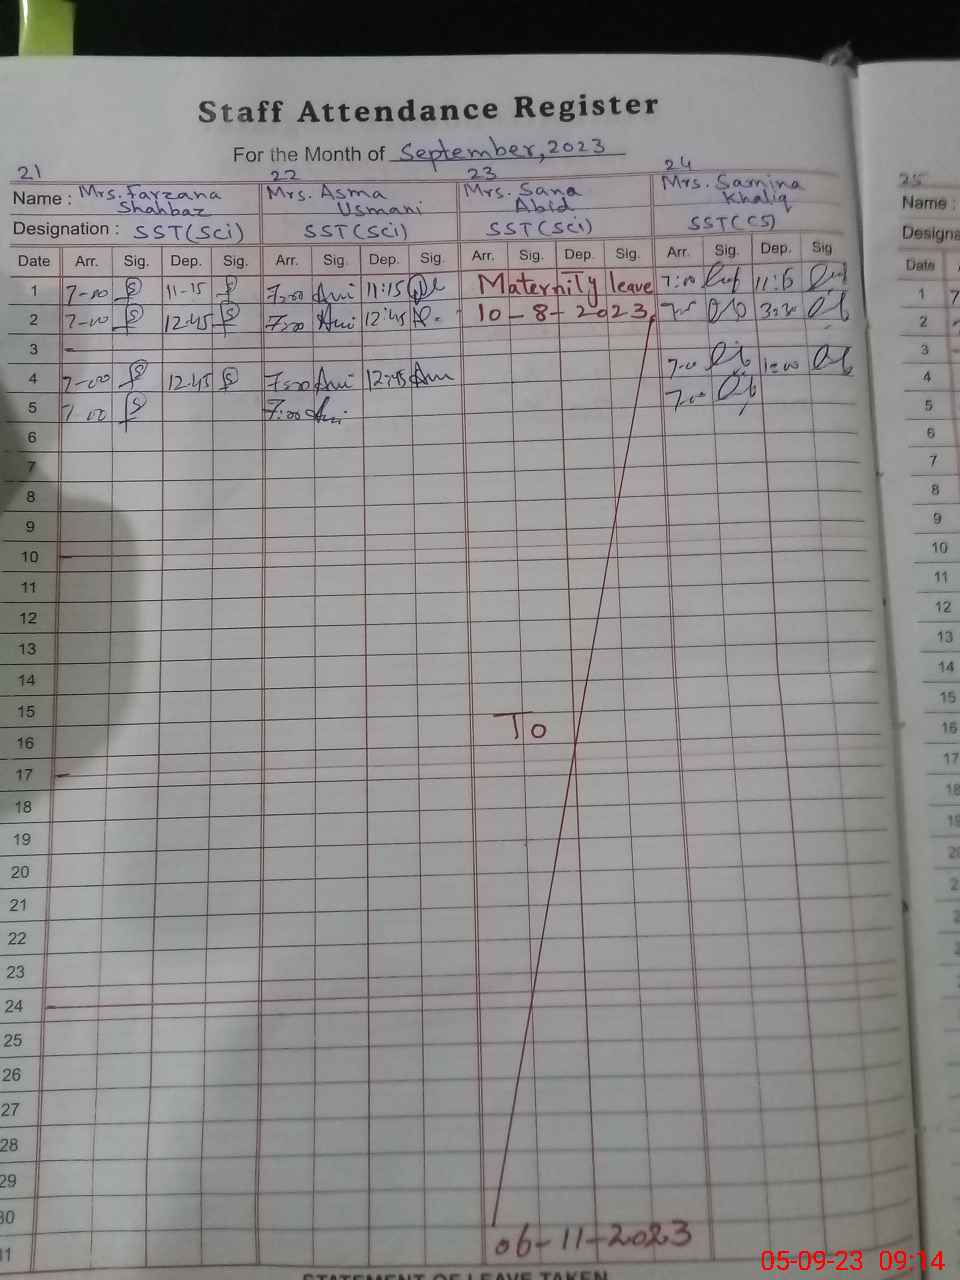 Staff Attendance Register
For the Month of September, 2023
21 22 23 24 25
Name : Mrs. Farzana Shahbaz Mrs. Asma Usmani Mrs. Sana Abid Mrs. Samina Khaliq Name :
Designation : SST(Sci) SST(Sci) SST(Sci) SST(CS)
Date Arr. Sig. Dep. Sig. Arr. Sig. Dep. Sig. Arr. Sig. Dep. Sig. Arr. Sig. Dep. Sig Date
1 7-00 11-15 7:00 11:15 Maternity leave 7:00 1
2 7-00 12.45 7:00 12:45 10-8-2023 2
3 3
4 7-00 12.45 7:00 12:45 7:00 1:00 4
5 7.00 7:00 7:00 5
6 6
7 7
8 8
9 9
10 10
11 11
12 12
13 13
14 14
15 To 15
16 16
17 17
18 18
19
20
21
22
23
24
25
26
27
28
29
30
31 06-11-2023
STATEMENT OF LEAVE TAKEN
05-09-23 09:14